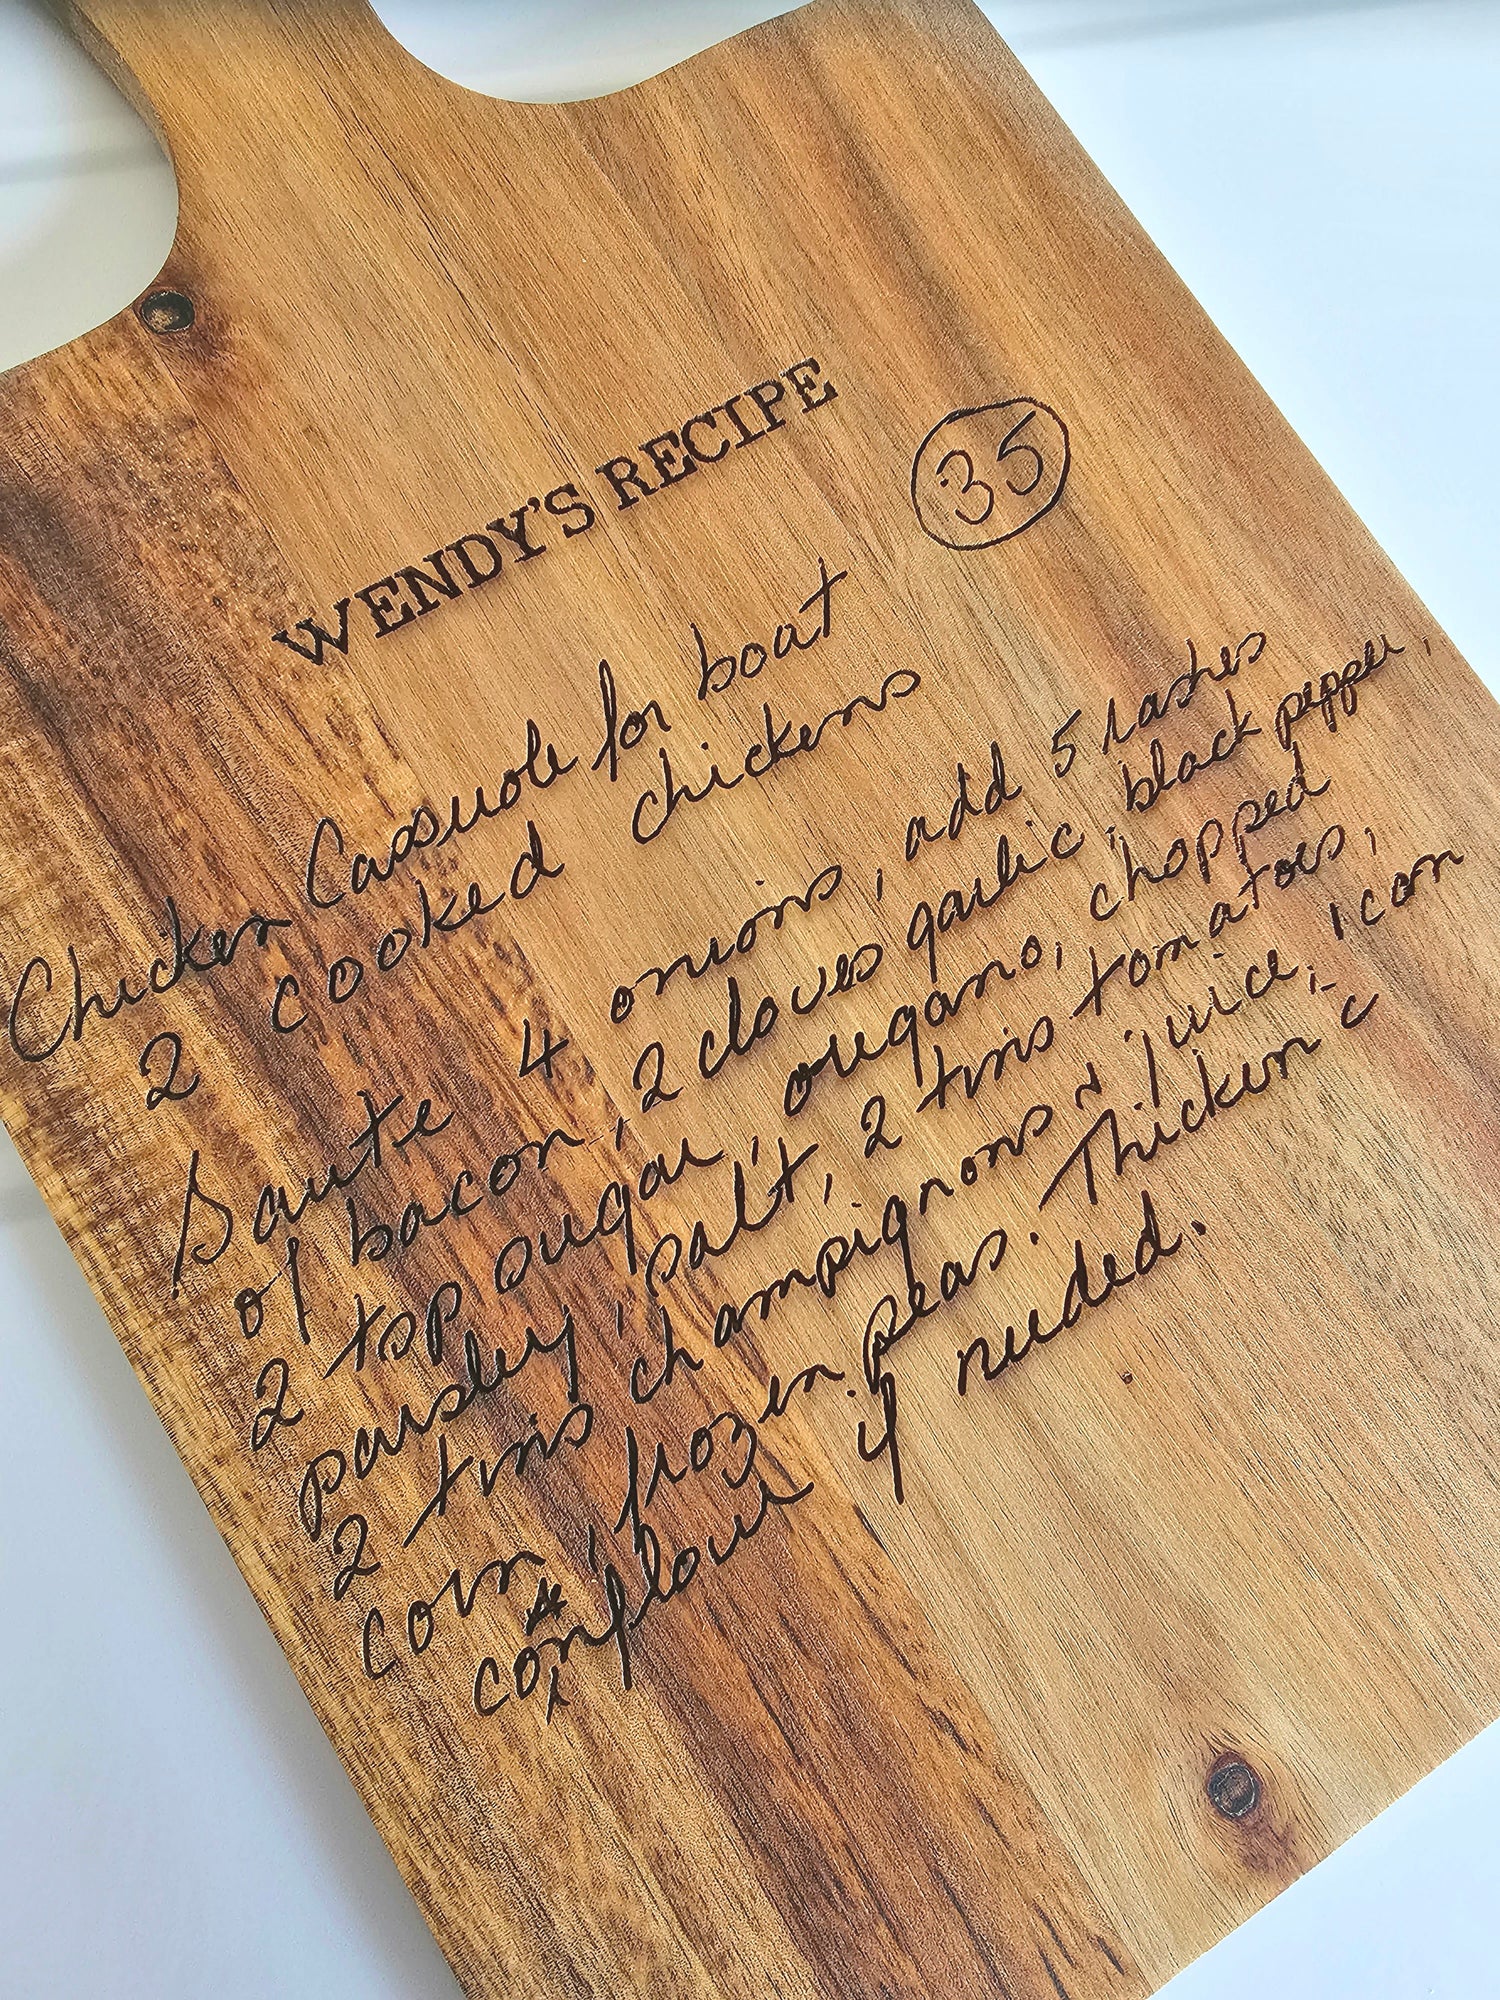 WENDY'S RECIPE
35
Chicken Casserole for boat
2 cooked chickens
Saute 4 onions, add 5 rashes
of bacon, 2 cloves garlic, black pepper,
2 tsp sugar, oregano, chopped
parsley, salt, 2 tins tomatoes,
2 tins champignons & juice, 1 can
corn, frozen peas. Thicken c
cornflour if needed.